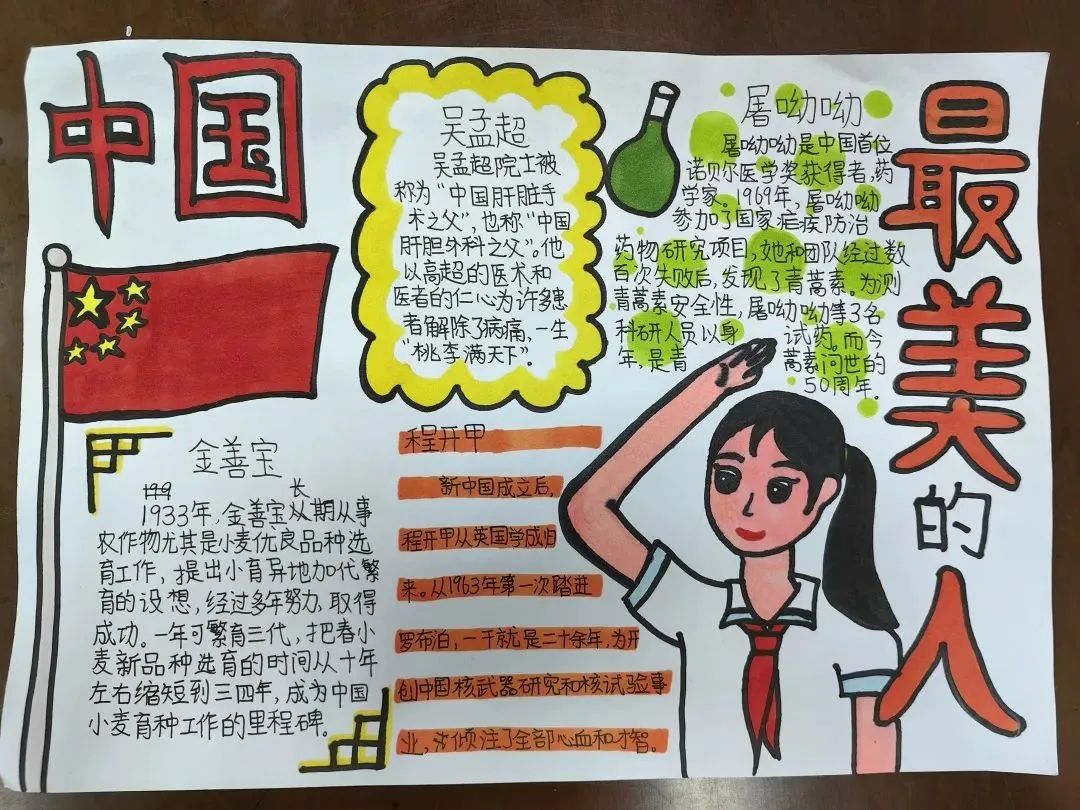 中国
吴孟超
吴孟超院士被
称为“中国肝脏手
术之父”,也称“中国
肝胆外科之父”。他
以高超的医术和
医者的仁心为许多患
者解除了病痛,一生
“桃李满天下”。
屠呦呦
屠呦呦是中国首位
诺贝尔医学奖获得者,药
学家。1969年,屠呦呦
参加了国家疟疾防治
药物研究项目,她和团队经过数
百次失败后,发现了青蒿素。为测
青蒿素安全性,屠呦呦等3名
科研人员以身试药。而今
年,是青蒿素问世的
50周年。
最美的人
金善宝
长
1933年,金善宝从期从事
农作物尤其是小麦优良品种选
育工作,提出小育异地加代繁
育的设想,经过多年努力,取得
成功。一年可繁育三代,把春小
麦新品种选育的时间从十年
左右缩短到三四年,成为中国
小麦育种工作的里程碑。
程开甲
新中国成立后,
程开甲从英国学成归
来。从1963年第一次踏进
罗布泊,一干就是二十余年,为开
创中国核武器研究和核试验事
业,倾注了全部心血和才智。